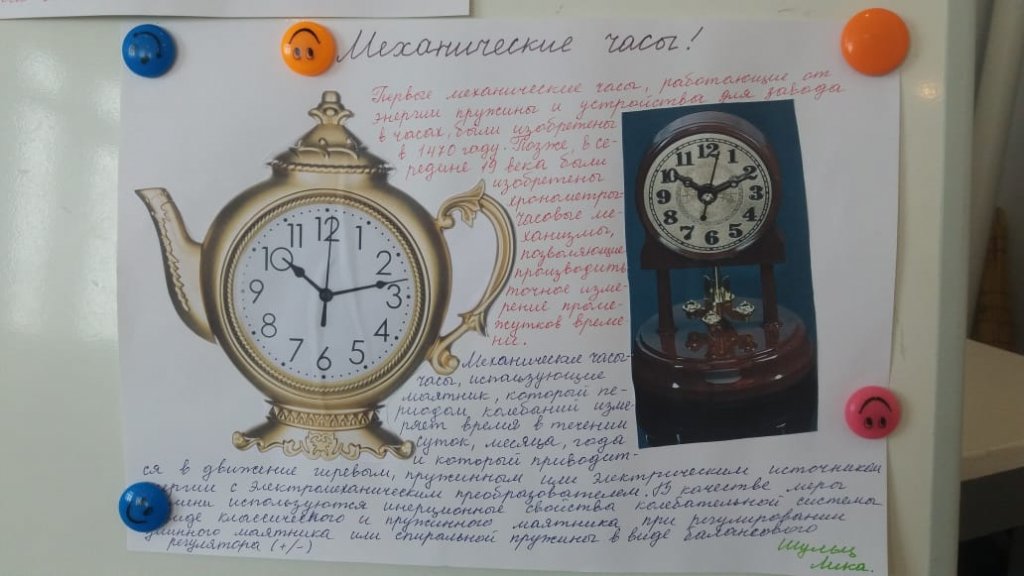 Механические часы!
Первые механические часы, работающие от
энергии пружины и устройства для завода
в часах, были изобретены
в 1470 году. Позже, в се-
редине 19 века были
изобретены
хронометры-
часовые ме-
ханизмы,
позволяющие
производить
точное изме-
рение проме-
жутков време-
ни.
Механические часы-
часы, использующие
маятник, который пе-
риодом колебаний изме-
ряет время в течении
суток, месяца, года
и который приводит-
ся в движение гиревым, пружинным или электрическим источником
энергии с электромеханическим преобразователем. В качестве меры
используются инерционные свойства колебательной системы
виде классического и пружинного маятника при регулировании
длинного маятника или спиральной пружины в виде балансового
регулятора (+/-)
Шульц
Лика.
12
1
2
3
4
5
6
7
8
9
10
11
12
1
2
3
4
5
6
7
8
9
10
11